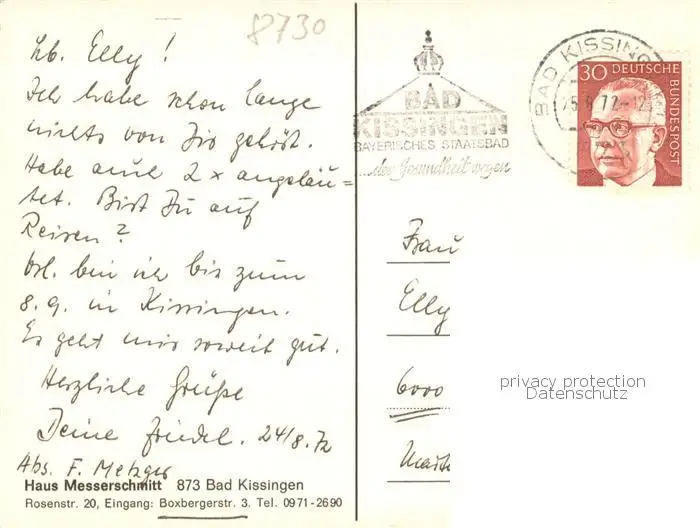 8730
Lb. Elly!
Ich habe schon lange
nichts von Dir gehört.
Habe auch 2 x angeläu=
tet. Bist Du auf
Reisen?
bin ich bis zum
8. 9. in Kissingen.
Es geht mir soweit gut.
Herzliche Grüße
Deine Friedel. 24/8.72
Abs. F. Metzger
Haus Messerschmitt 873 Bad Kissingen
Rosenstr. 20, Eingang: Boxbergerstr. 3. Tel. 0971-2690
BAD
KISSINGEN
BAYERISCHES STAATSBAD
...der Gesundheit wegen
BAD KISSING
72-12
30 DEUTSCHE
BUNDESPOST
Frau
Elly
6000
privacy protection
Datenschutz